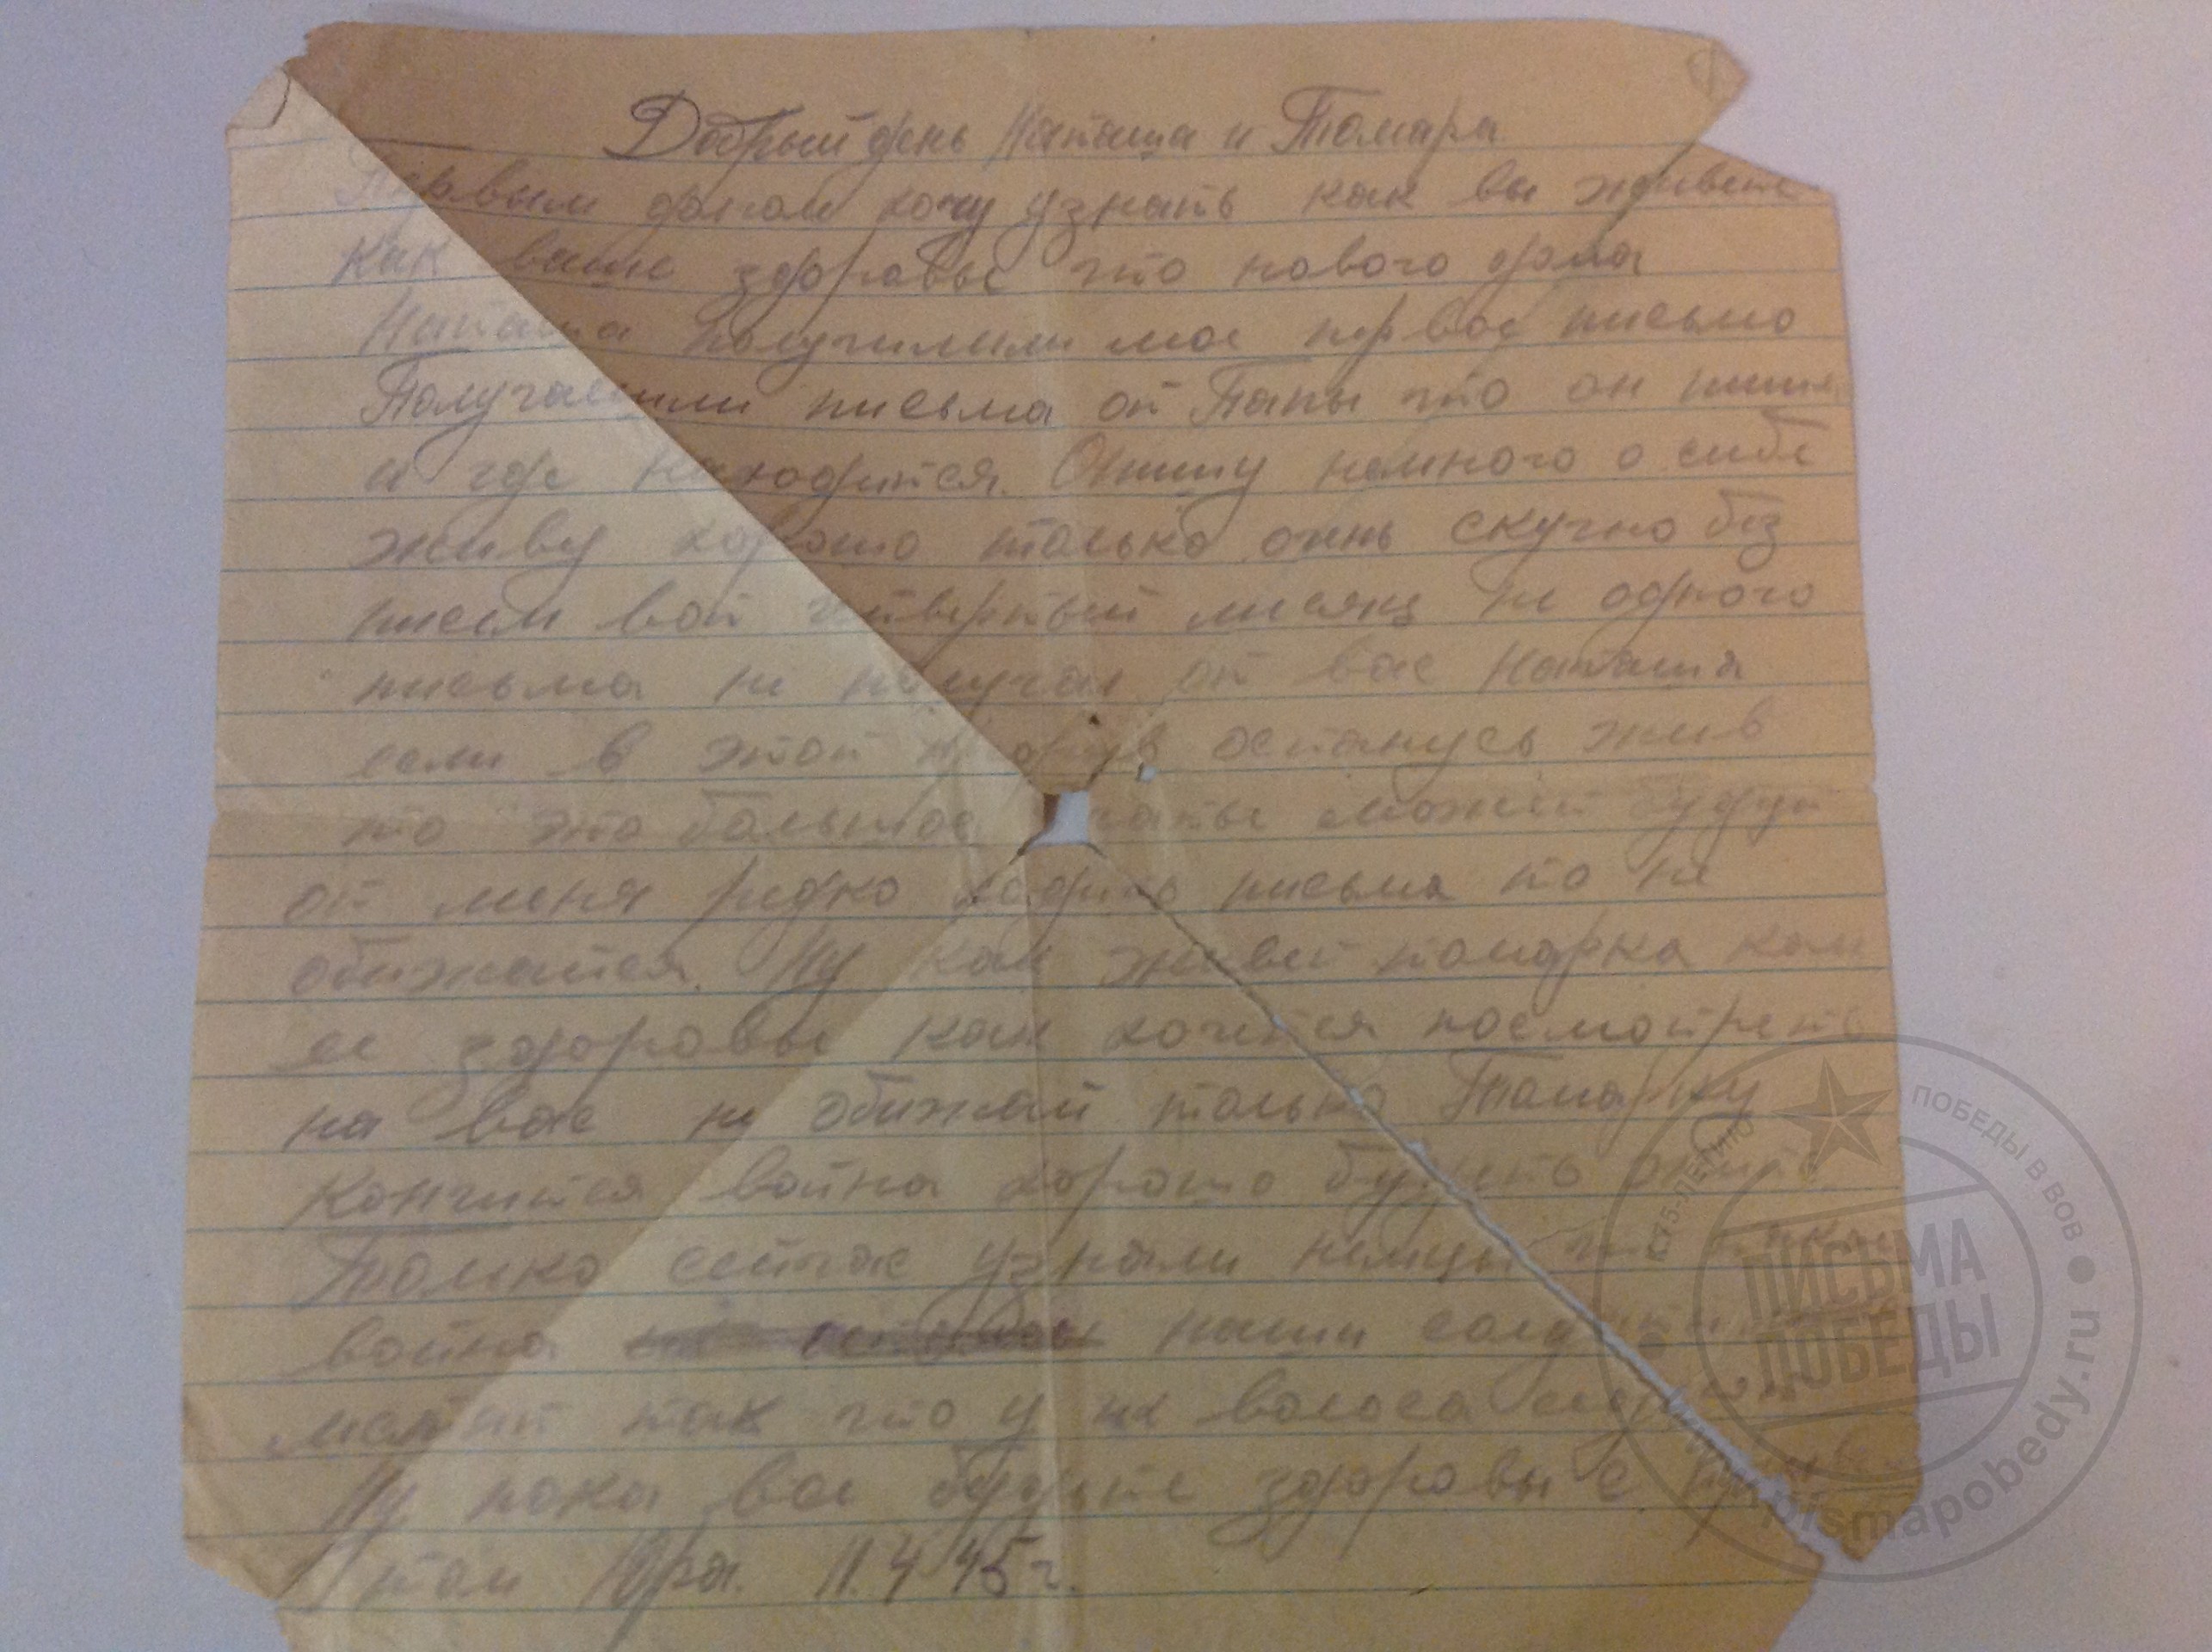 Добрый день Наташа и Тамара
Первым делом хочу узнать как вы живете
как ваше здоровье что нового дома
Наташа получилили мое первое письмо
Получаешли письма от Папы что он пишет
и где находится. Опишу немного о себе
живу хорошо только очнь скучно без
писем вот четвертый месяц не одного
письма не получал от вас Наташа
если в этот останусь жив
то это большое может будут
от меня редко ходить письма то не
обижайся. Ну как живет томарка как
ее здоровье как хочется посмотреть
на вас не обижай только Тамарку
Кончится война хорошо будить опять
Только сейчас узнали немцы что такое
война наши солдаты
так что у их волоса
Ну пока все будьте здоровы с
том Юра. 11.4 45 г.
К 75-ЛЕТИЮ ПОБЕДЫ В ВОВ
ПИСЬМА
ПОБЕДЫ
pismapobedy.ru